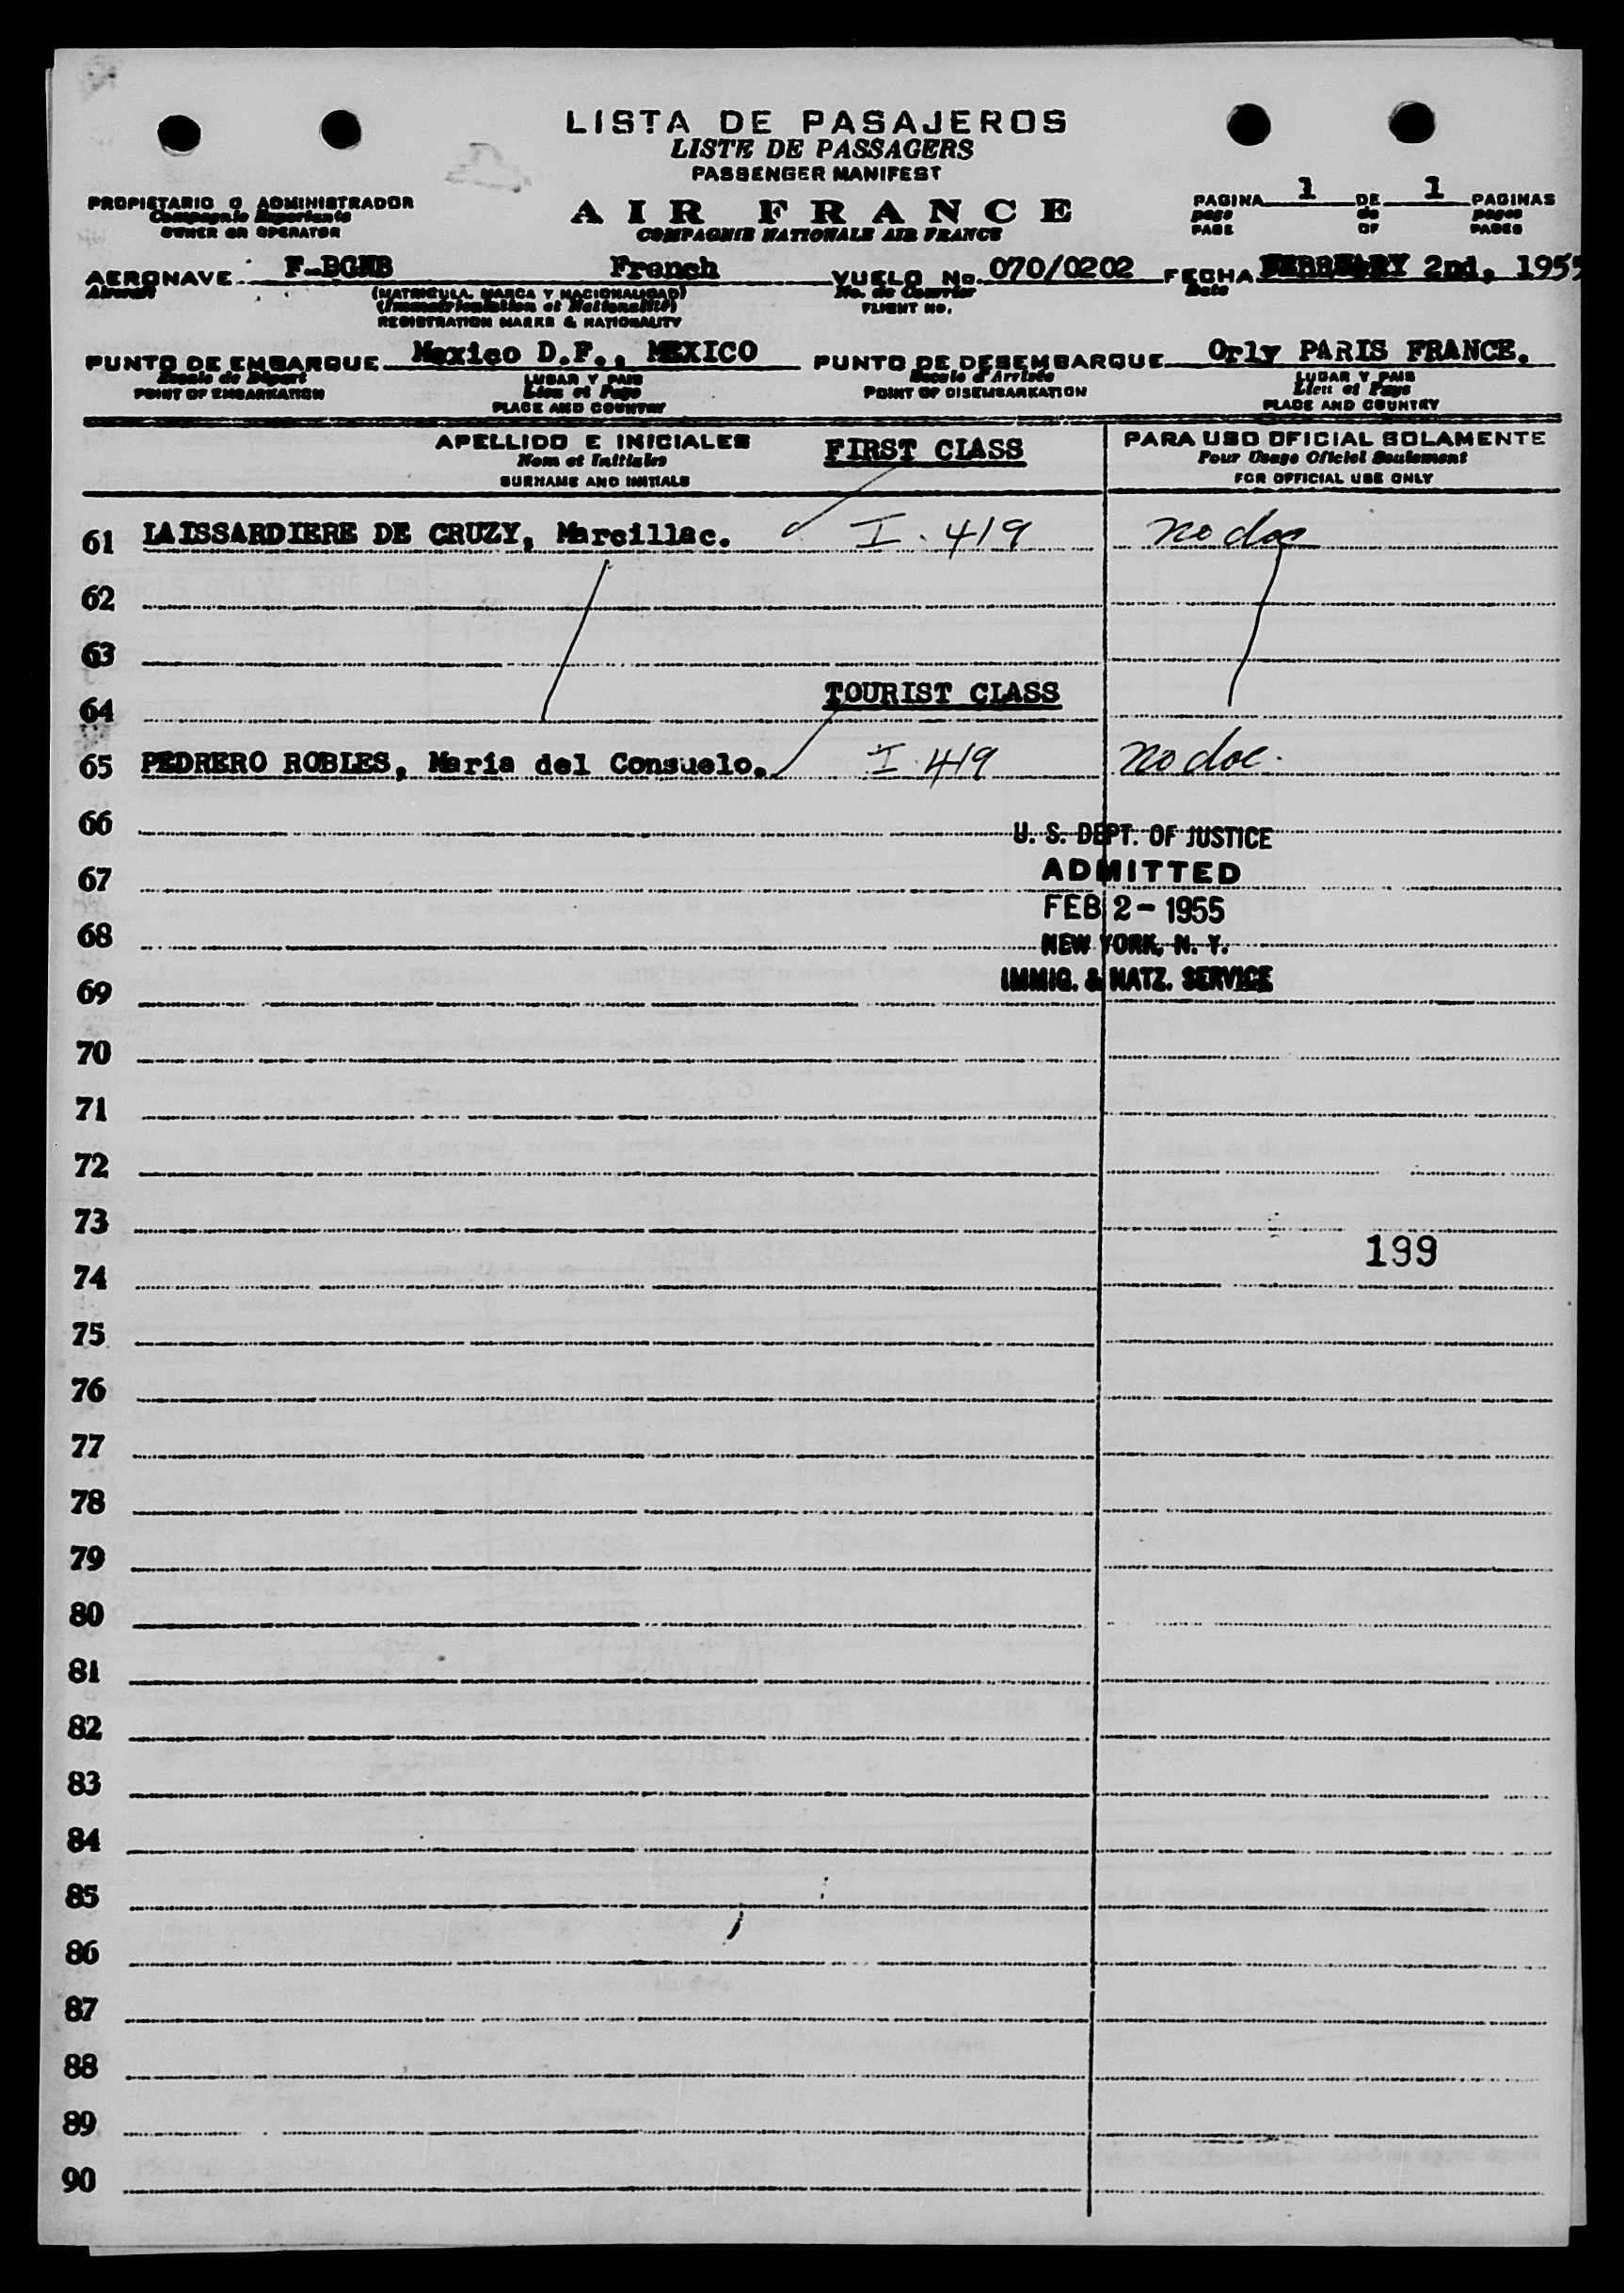 LISTA DE PASAJEROS
LISTE DE PASSAGERS
PASSENGER MANIFEST
PROPIETARIO O ADMINISTRADOR
Compagnie Exportante
OWNER OR OPERATOR
AIR FRANCE
COMPAGNIE NATIONALE AIR FRANCE
PAGINA 1 DE 1 PAGINAS
page de pages
PAGE OF PAGES
AERONAVE F-BGNB French VUELO No. 070/0202 FECHA FEBRUARY 2nd, 1955
Aircraft (MATRICULA, MARCA Y NACIONALIDAD) No. de Courrier Date
(Immatriculation et Nationalité) FLIGHT NO.
REGISTRATION MARKS & NATIONALITY
PUNTO DE EMBARQUE Mexico D.F., MEXICO PUNTO DE DESEMBARQUE Orly PARIS FRANCE.
Escale de Départ LUGAR Y PAIS Escale d'Arrivée LUGAR Y PAIS
POINT OF EMBARKATION Lieu et Pays POINT OF DISEMBARKATION Lieu et Pays
PLACE AND COUNTRY PLACE AND COUNTRY
APELLIDO E INICIALES FIRST CLASS PARA USO OFICIAL SOLAMENTE
Nom et Initiales Pour Usage Oficiel Seulement
SURNAME AND INITIALS FOR OFFICIAL USE ONLY
61 LAISSARDIERE DE CRUZY, Marcillac. I. 419 no doc
62
63
TOURIST CLASS
64
65 PEDRERO ROBLES, Maria del Consuelo. I. 419 no doc.
66
U. S. DEPT. OF JUSTICE
67 ADMITTED
FEB 2 - 1955
68 NEW YORK, N. Y.
69 IMMIG. & NATZ. SERVICE
70
71
72
73
199
74
75
76
77
78
79
80
81
82
83
84
85
86
87
88
89
90